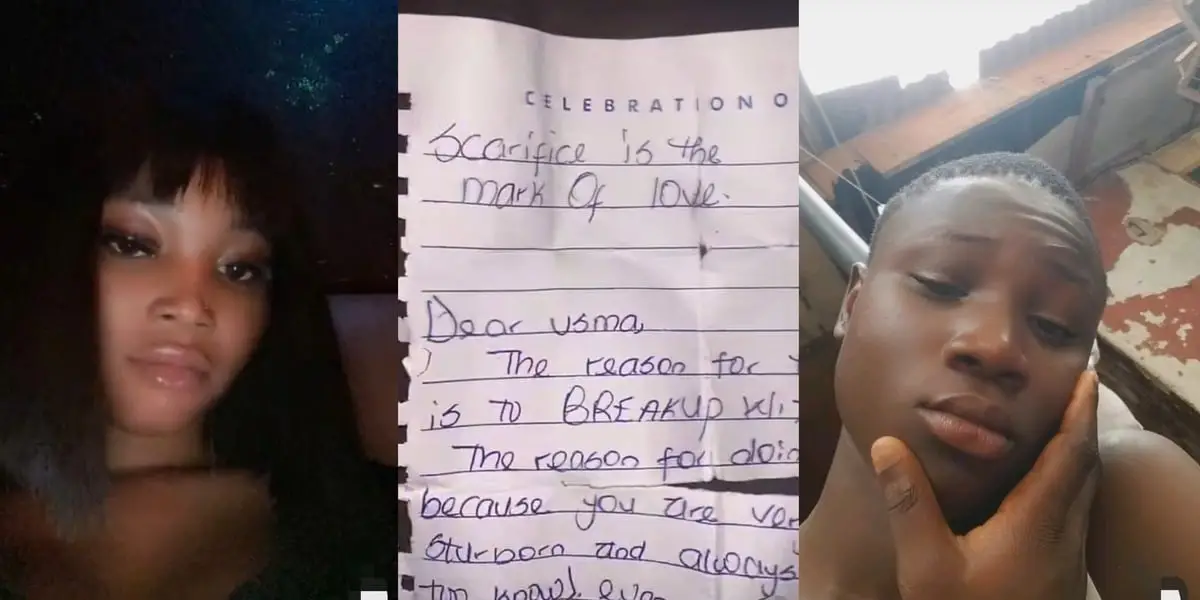 CELEBRATION O
Scarifice is the
mark Of love.
Dear usma,
The reason for
is to BREAKUP
The reason for doin
because you are ver
Sturborn and always